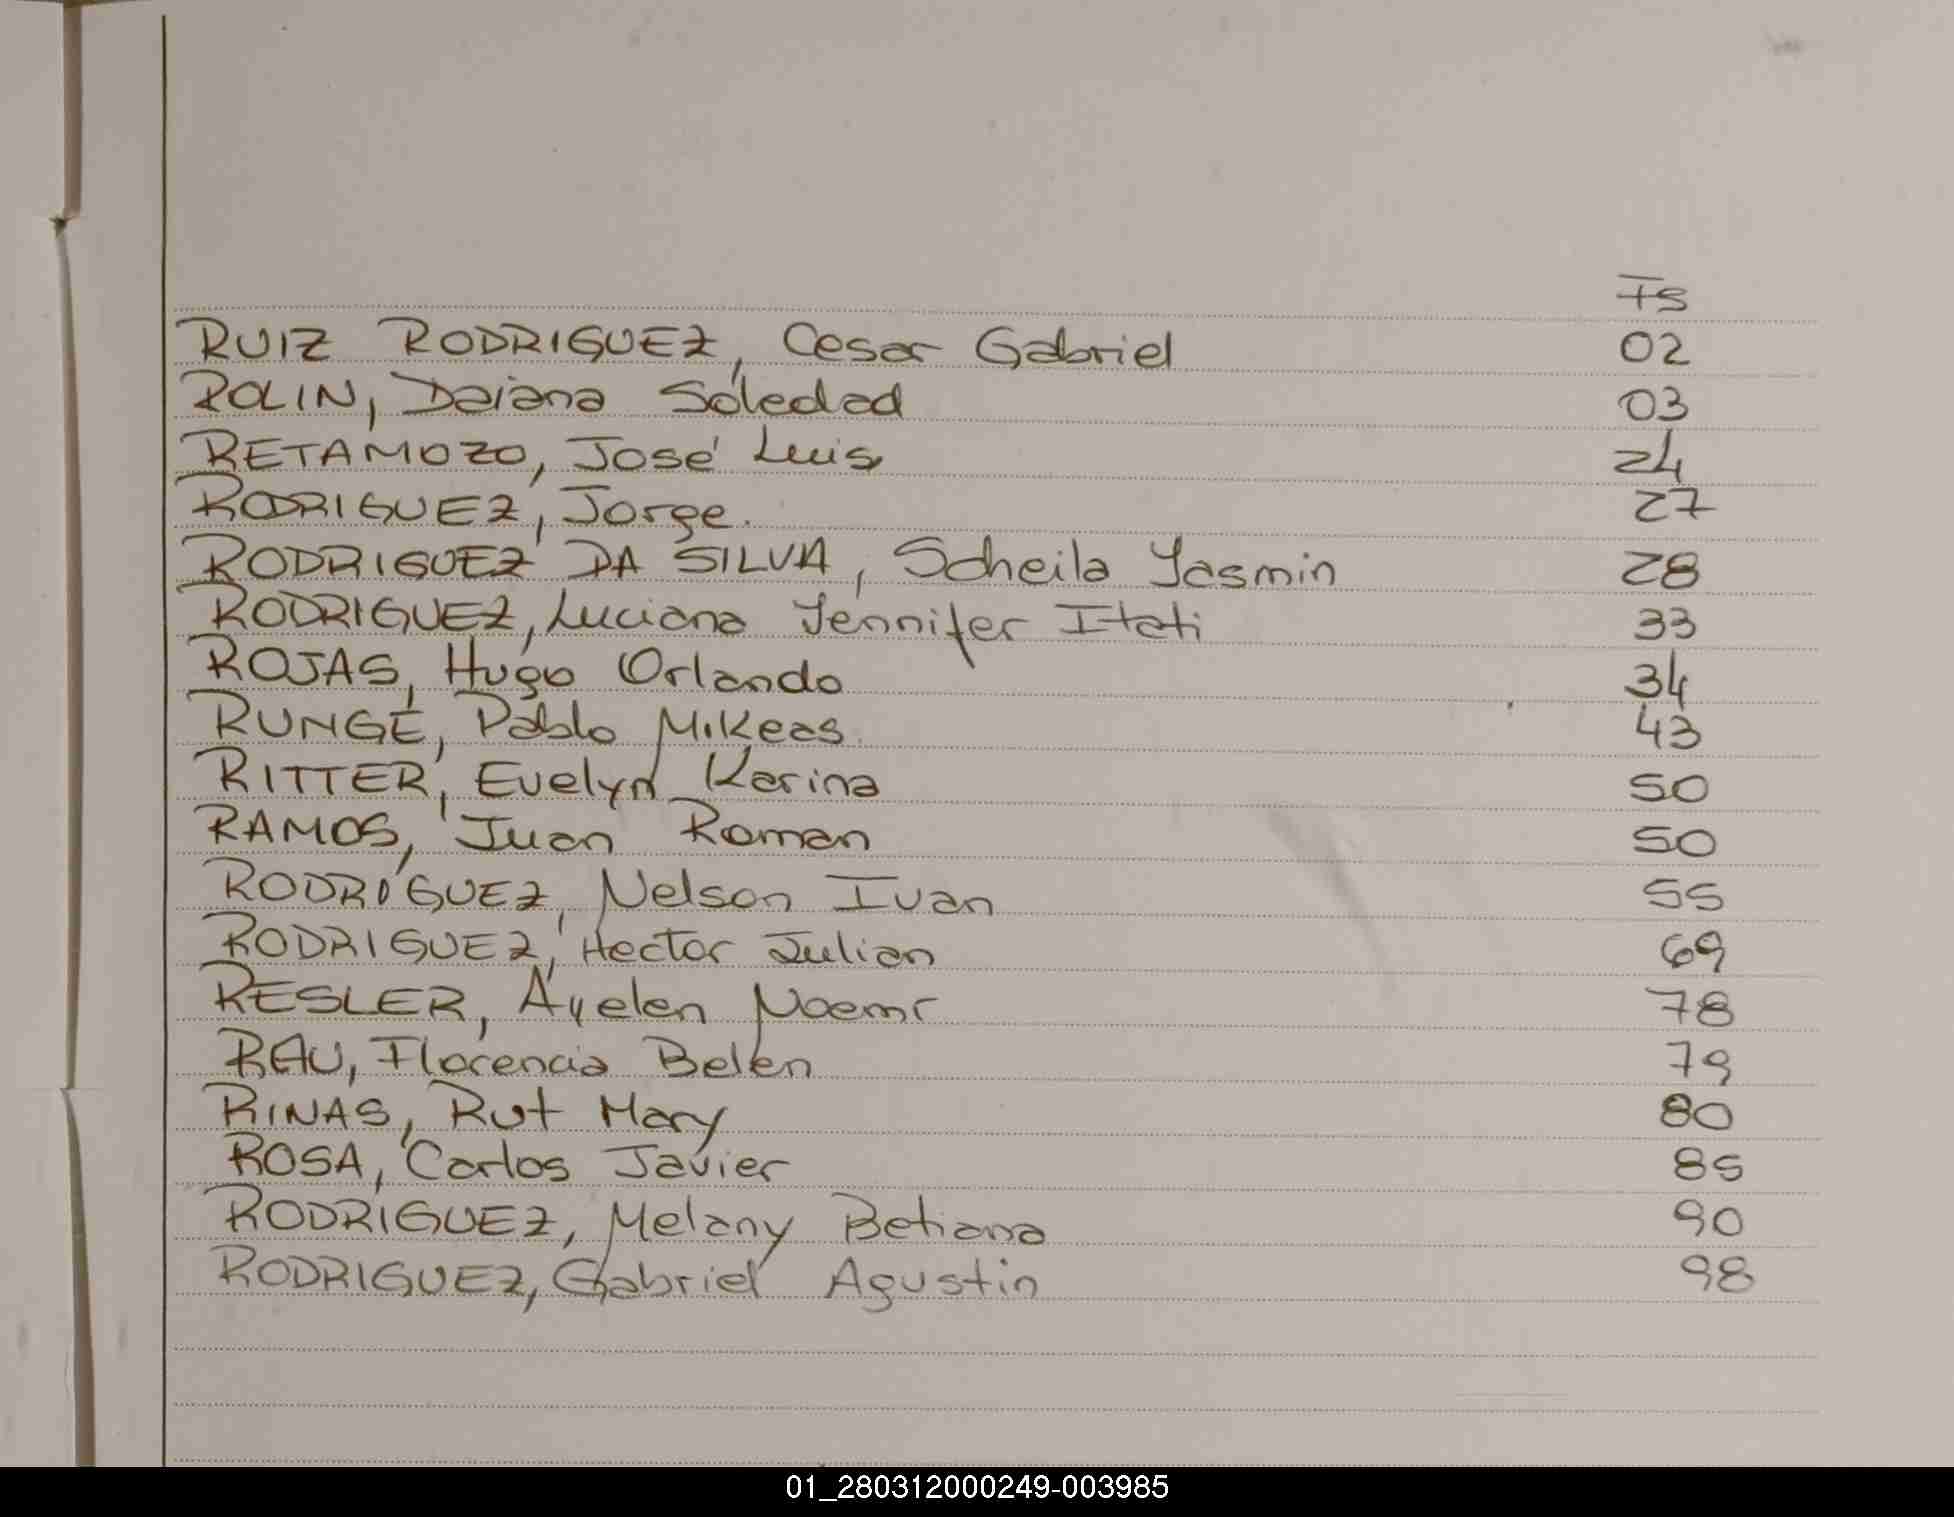 Fs
RUIZ RODRIGUEZ, Cesar Gabriel 02
ROLIN, Daiana Soledad 03
RETAMOZO, José Luis 24
RODRIGUEZ, Jorge. 27
RODRIGUEZ DA SILVA, Scheila Yasmin 28
RODRIGUEZ, Luciana Yennifer Itati 33
ROJAS, Hugo Orlando 34
RUNGE, Pablo Mikeas 43
RITTER, Evelyn Karina 50
RAMOS, Juan Roman 50
RODRIGUEZ, Nelson Ivan 55
RODRIGUEZ, Hector Julian 69
RESLER, Ayelen Noemi 78
RAU, Florencia Belen 79
RINAS, Rut Mary 80
ROSA, Carlos Javier 85
RODRIGUEZ, Melany Betiana 90
RODRIGUEZ, Gabriel Agustin 98
01_280312000249-003985